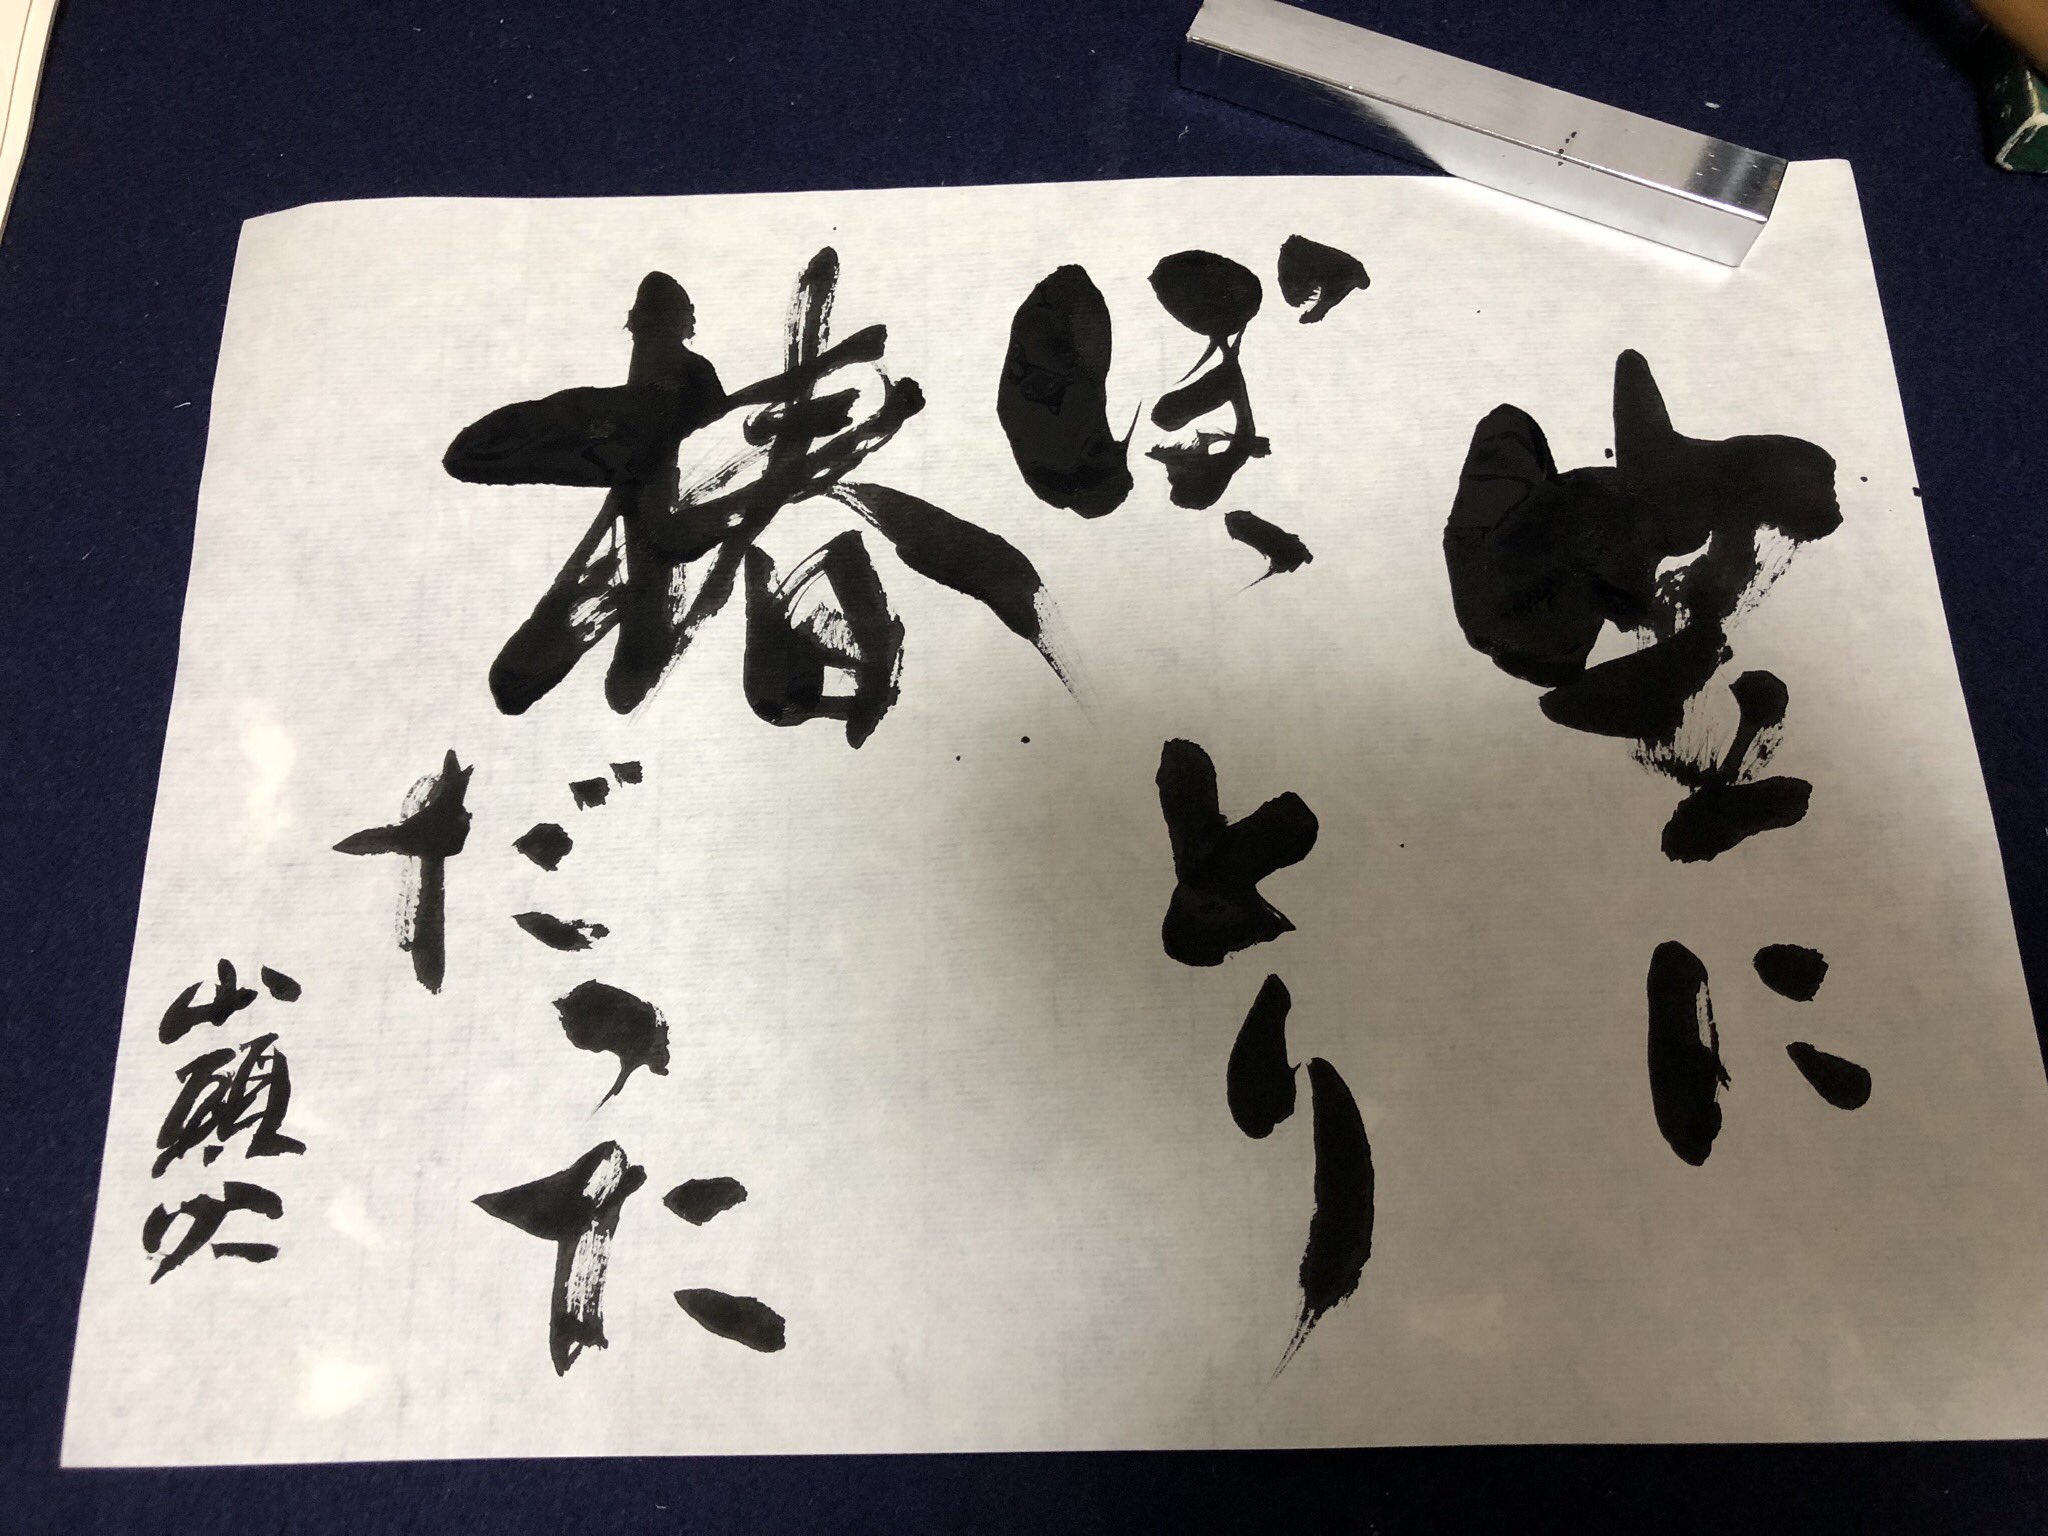 笠に
ぽとり
椿
だった
山頭火